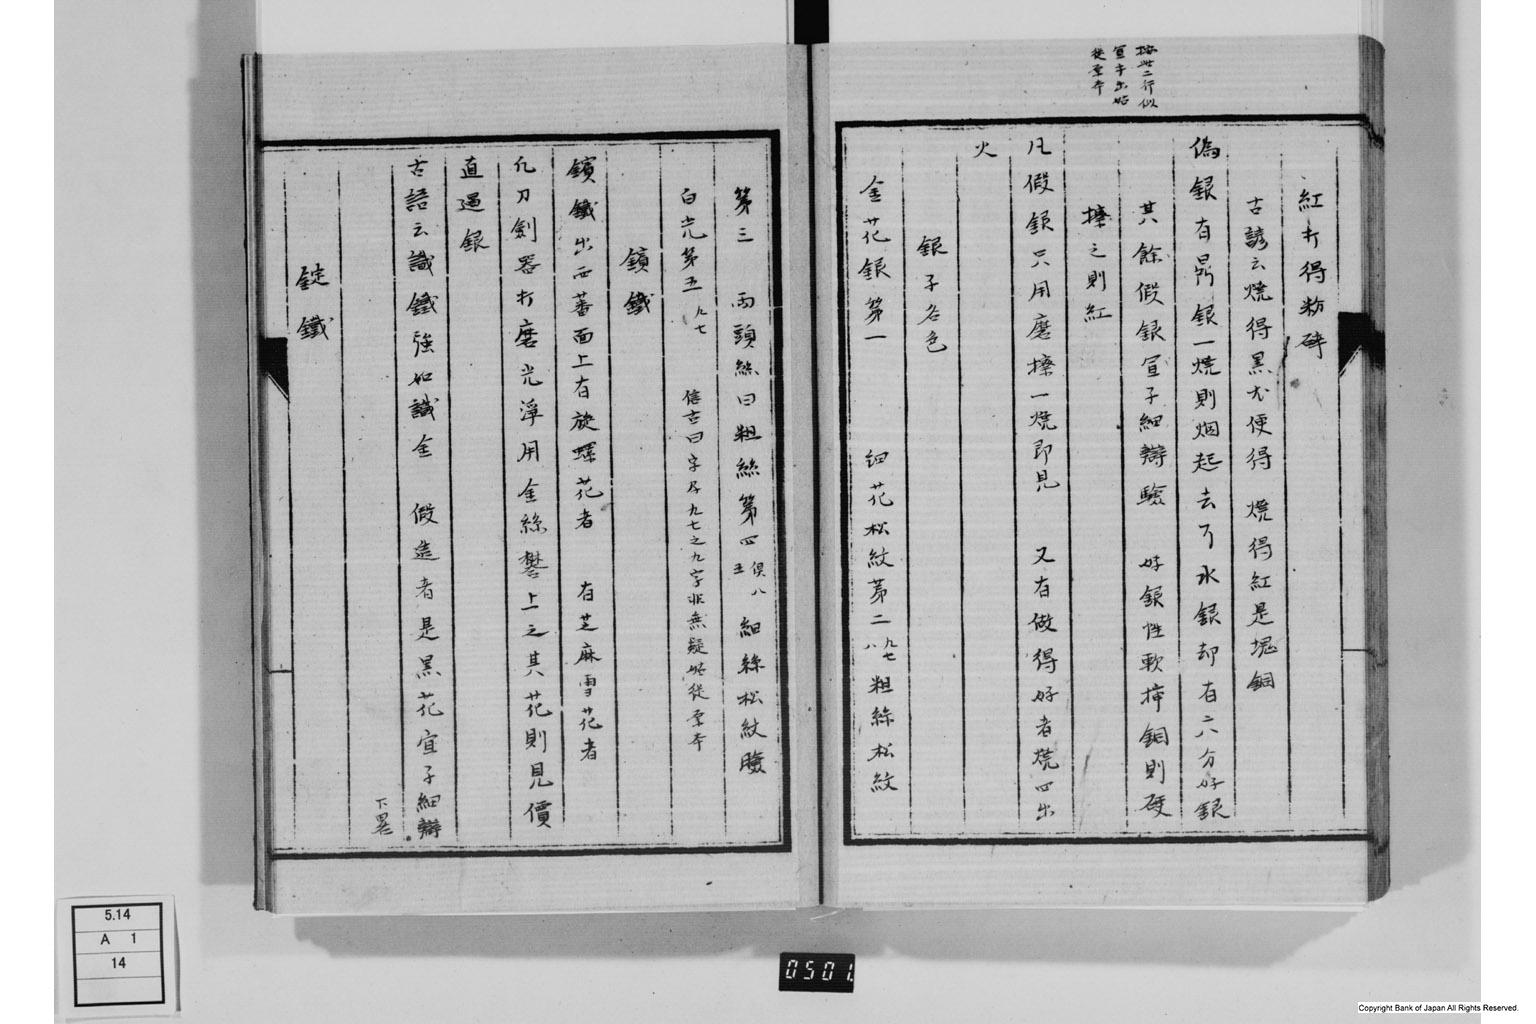 按此二行似
宜乎出姑
從原本
紅打得粉碎
古諺云燒得黑尤便得　燒得紅是塊銅
偽銀有昴銀一燒則烟起去了水銀却有六分好銀
其餘假銀宜子細辯驗　好銀性軟揷銅則硬
擦之則紅
凡假銀只用磨擦一燒即見　又有做得好者燒四出
火
銀子名色
金花銀第一　細花松紋第二 九七八 粗絲松紋
第三　兩頭絲曰粗絲第四 俱八五 細絲松紋臉
白光第五 九七　信古曰字及九七之九字非無疑姑從原本
鑌鐵
鑌鐵出西蕃面上有旋螺花者　有芝麻雪花者
凢刀劍器打磨光淨用金絲礬上之其花則見價
直過銀
古語云識鐵強如識金　假造者是黑花宜子細辯
下畧
錠鐵
5.14
A 1
14
0501
Copyright Bank of Japan All Rights Reserved.